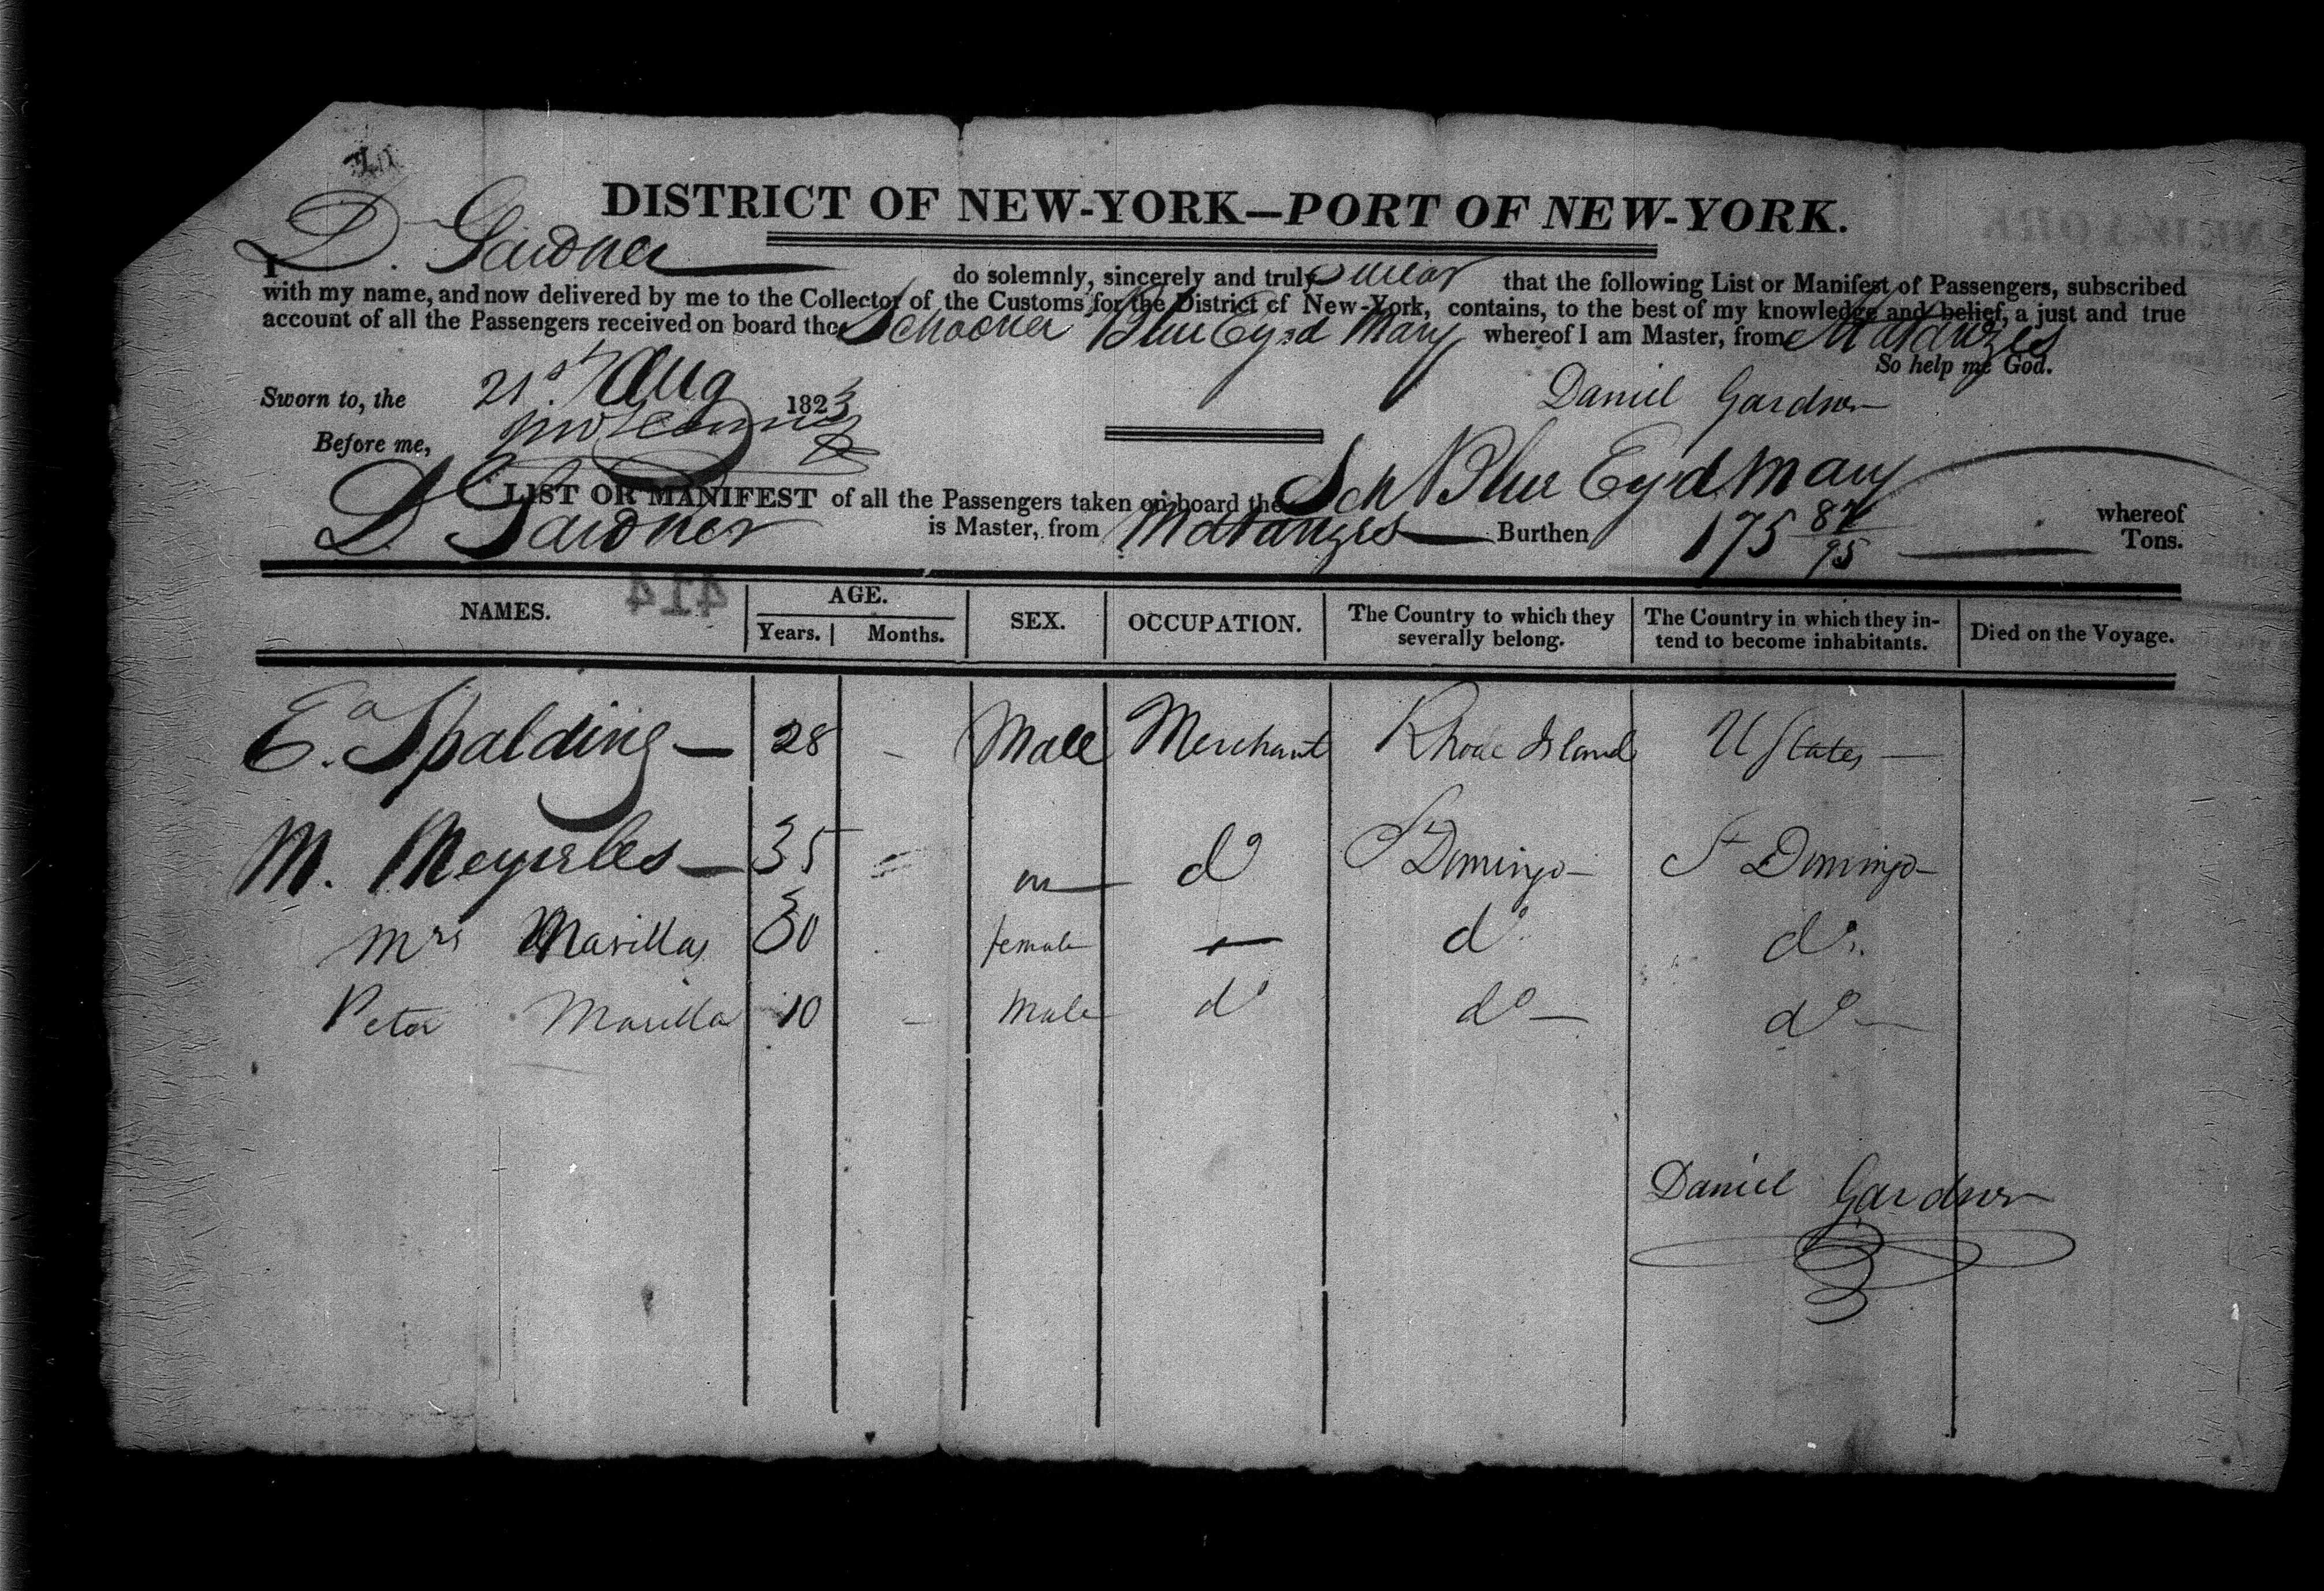 DISTRICT OF NEW-YORK—PORT OF NEW-YORK.
I D. Gardner do solemnly, sincerely and truly Swear that the following List or Manifest of Passengers, subscribed
with my name, and now delivered by me to the Collector of the Customs for the District of New-York, contains, to the best of my knowledge and belief, a just and true
account of all the Passengers received on board the Schooner Blue Eyed Mary whereof I am Master, from Matanzes
So help me God.
Sworn to, the 21st Aug 1823 Daniel Gardner
Before me,
LIST OR MANIFEST of all the Passengers taken on board the Sch Blue Eyd Mary whereof
D Gardner is Master, from Matanzes Burthen 175 87/95 Tons.
414
NAMES. AGE. Years. Months. SEX. OCCUPATION. The Country to which they severally belong. The Country in which they intend to become inhabitants. Died on the Voyage.
E. Spalding — 28 - Male Merchant Rhode Island U States —
M. 35 m do St Domingo — St Domingo —
Mrs Marillas 30 female — do do
Peter Marilla 10 - Male do do — do —
Daniel Gardner